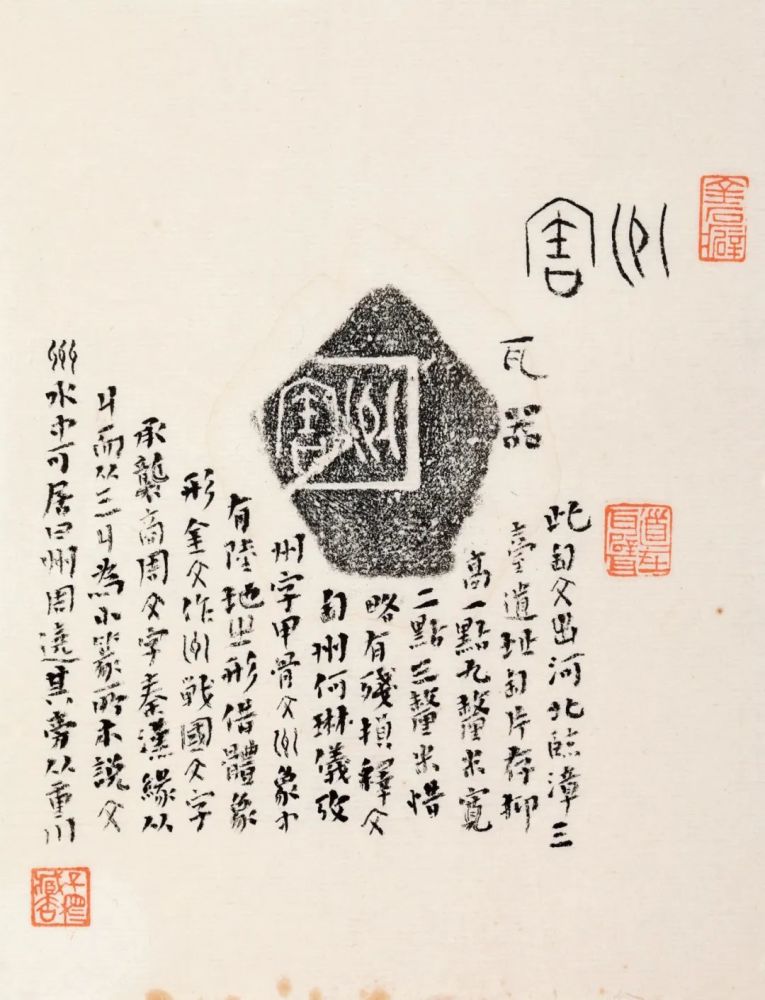 金石癖
州
瓦器
道在瓦甓
此匋文出河北臨漳三
臺遺址匋片存抑
高一點九釐米寬
二點三釐米惜
略有殘損釋文
匋州何琳儀攷
州字甲骨文州象中
有陸地之形借體象
形金文作州戰國文字
承襲商周文字秦漢緣从
丩而从三丩為小篆所本說文
州水中可居曰州周遶其旁从重川